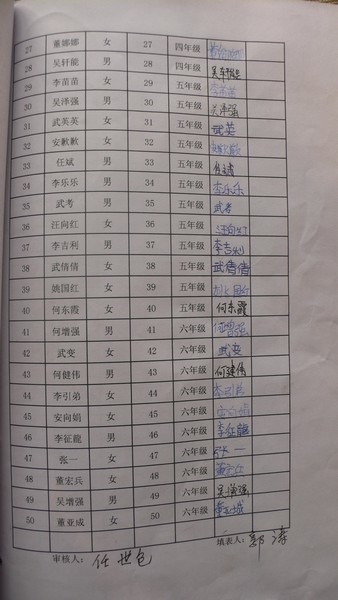 27 董娜娜 女 27 四年级
28 吴轩能 男 28 四年级 吴轩能
29 李苗苗 女 29 五年级 李苗苗
30 吴泽强 男 30 五年级 吴泽强
31 武英英 女 31 五年级 武英
32 安歉歉 女 32 五年级
33 任斌 男 33 五年级 任斌
34 李乐乐 男 34 五年级 李乐乐
35 武考 男 35 五年级 武考
36 汪向红 女 36 五年级 汪向红
37 李吉利 男 37 五年级 李吉利
38 武倩倩 女 38 五年级 武倩倩
39 姚国红 女 39 五年级
40 何东霞 女 40 五年级 何东霞
41 何增强 男 41 六年级 何增强
42 武变 女 42 六年级 武变
43 何健伟 男 43 六年级 何健伟
44 李引弟 女 44 六年级 李引弟
45 安向娟 女 45 六年级 安向娟
46 李征龍 男 46 六年级 李征龍
47 张一 女 47 六年级 张一
48 董宏兵 女 48 六年级
49 吴增强 男 49 六年级 吴增强
50 董亚成 女 50 六年级
审核人： 任世包 填表人：